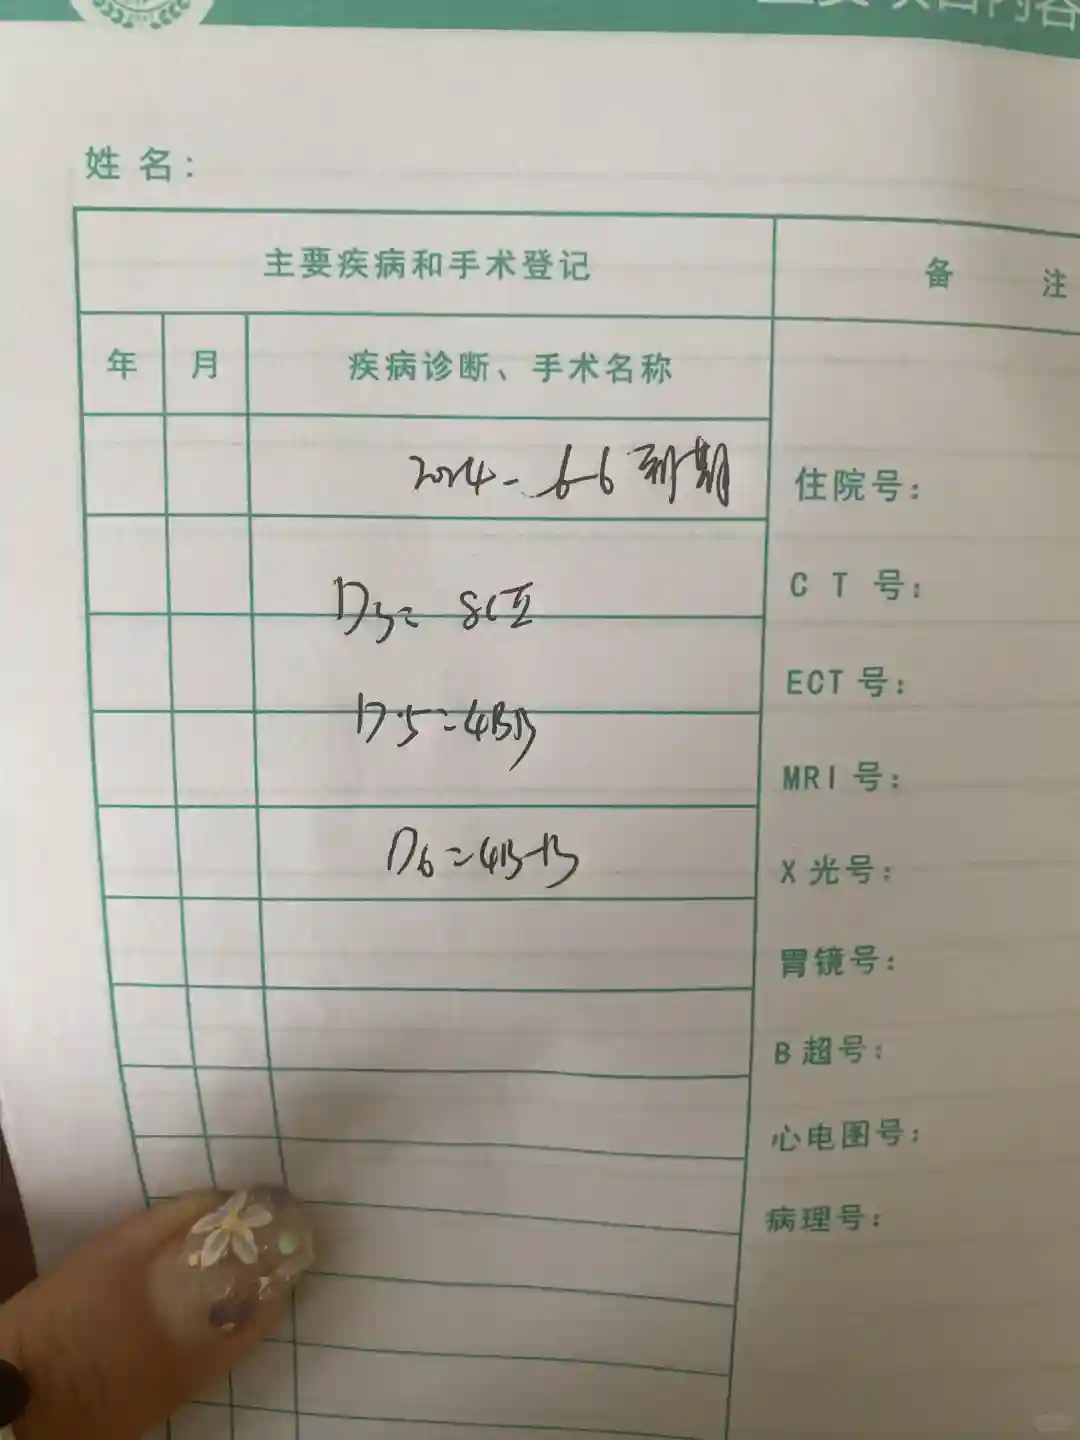 姓 名：
主要疾病和手术登记
备 注
年 月 疾病诊断、手术名称
2024-6-6到期
住院号：
D3= 8CⅡ
C T 号：
ECT号：
D.5=4BB
MRI号：
D6=4B-B
X光号：
胃镜号：
B超号：
心电图号：
病理号：